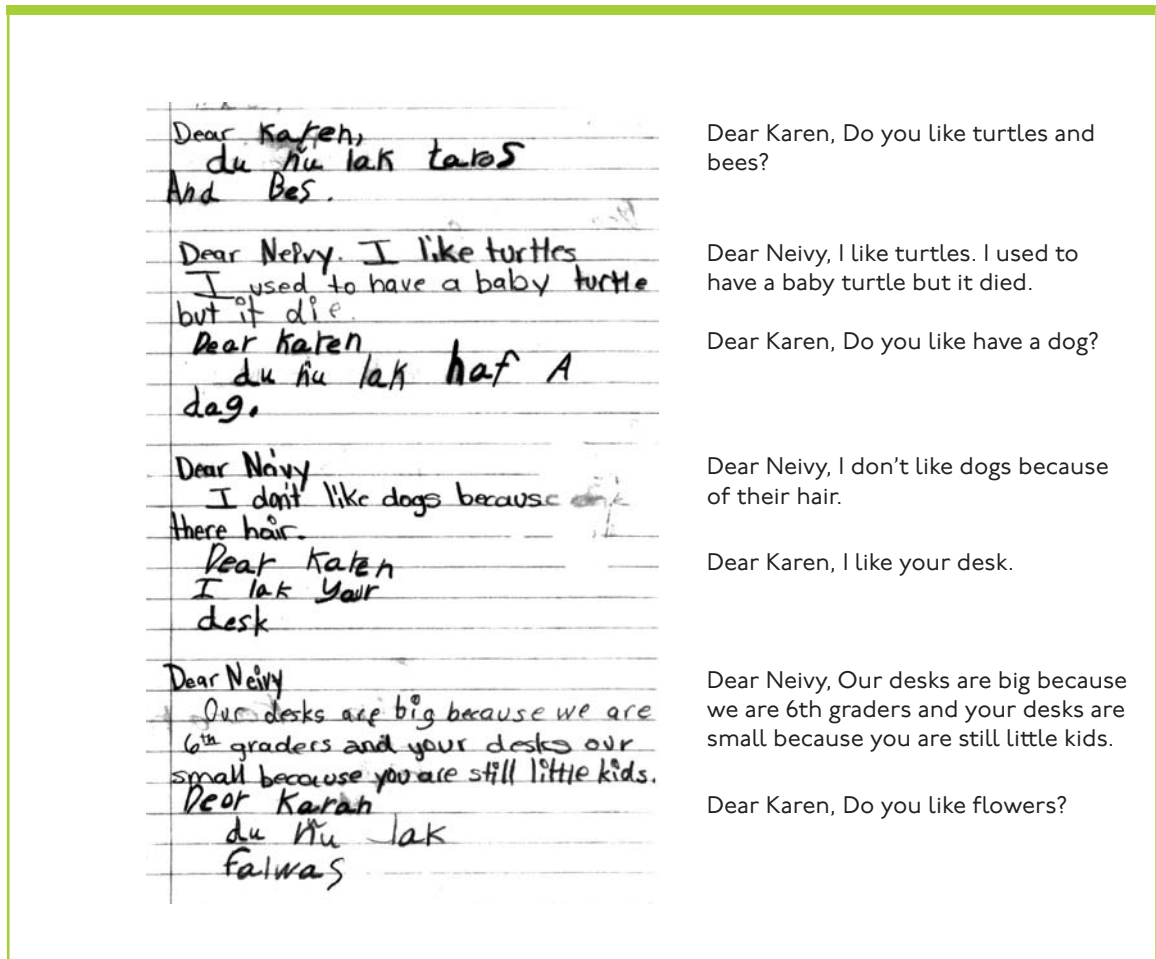 Dear Karen,
du ñu lak taros
And Bes.
Dear Neivy. I like turtles
I used to have a baby turtle
but it die.
Dear Karen
du ñu lak haf A
dag.
Dear Neivy
I don't like dogs because
there hair.
Dear Karen
I lak your
desk
Dear Neivy
Our desks are big because we are
6th graders and your desks our
small because you are still little kids.
Dear Karan
du ñu lak
falwas
Dear Karen, Do you like turtles and
bees?
Dear Neivy, I like turtles. I used to
have a baby turtle but it died.
Dear Karen, Do you like have a dog?
Dear Neivy, I don’t like dogs because
of their hair.
Dear Karen, I like your desk.
Dear Neivy, Our desks are big because
we are 6th graders and your desks are
small because you are still little kids.
Dear Karen, Do you like flowers?